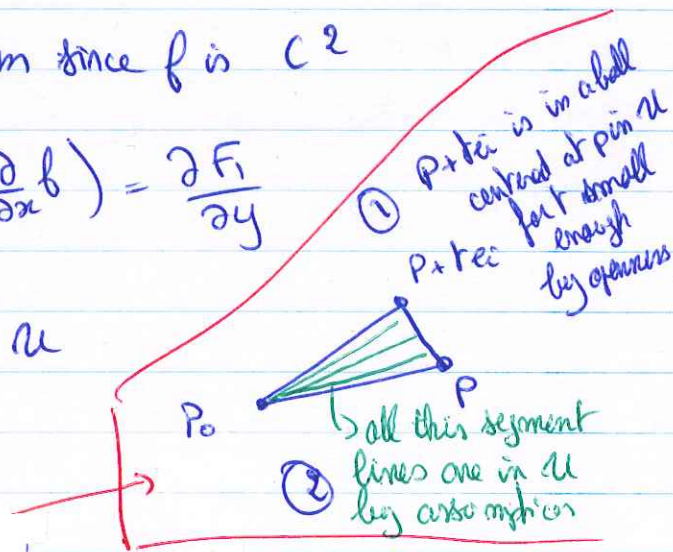 m since f is C²
∂/∂x f) = ∂F₁/∂y
U
① P+tei is in a ball
centered at p in U
for t small
enough
by openness
P+tei
P
P₀
all this segment
② lines are in U
by assomption